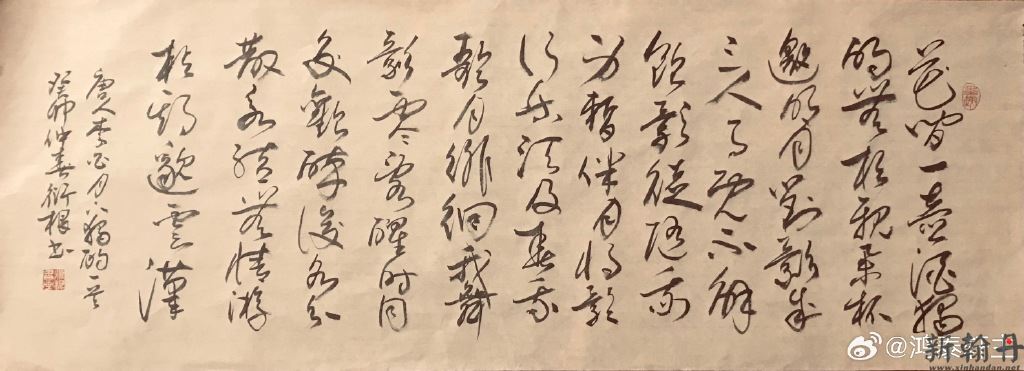 花間一壺酒獨
酌無相親舉杯
邀明月對影成
三人月既不解
飲影徒隨我
身暫伴月將影
行樂須及春我
歌月徘徊我舞
影零亂醒時同
交歡醉後各分
散永結無情游
相期邈雲漢
唐人李白月下獨酌一首
癸卯仲春衍根書
@鸿
新翰丹
www.xinhandan.net